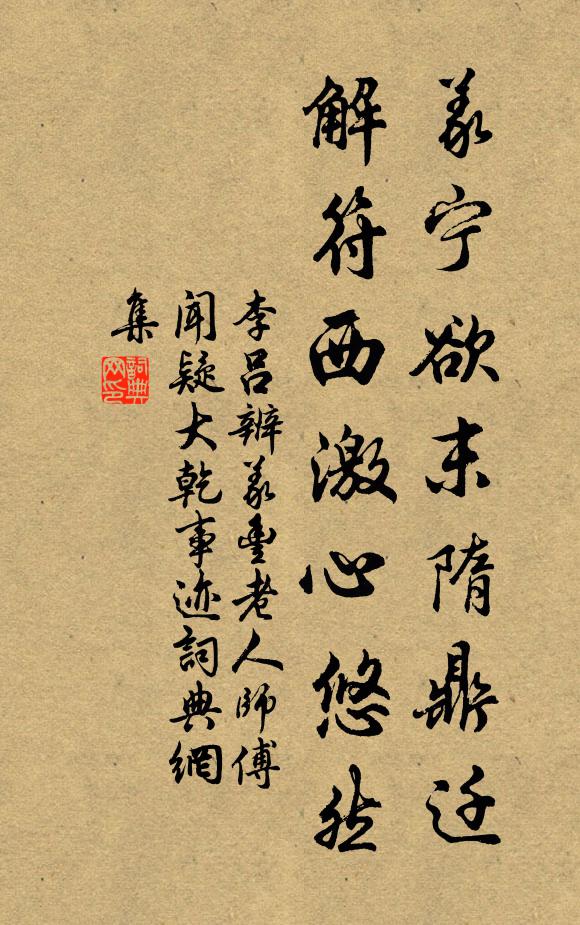 義宁欲末隋鼎迁
解符西激心悠然
李吕辨義豐老人師傅
聞疑大乾事迹詞典網
集
詞典网印